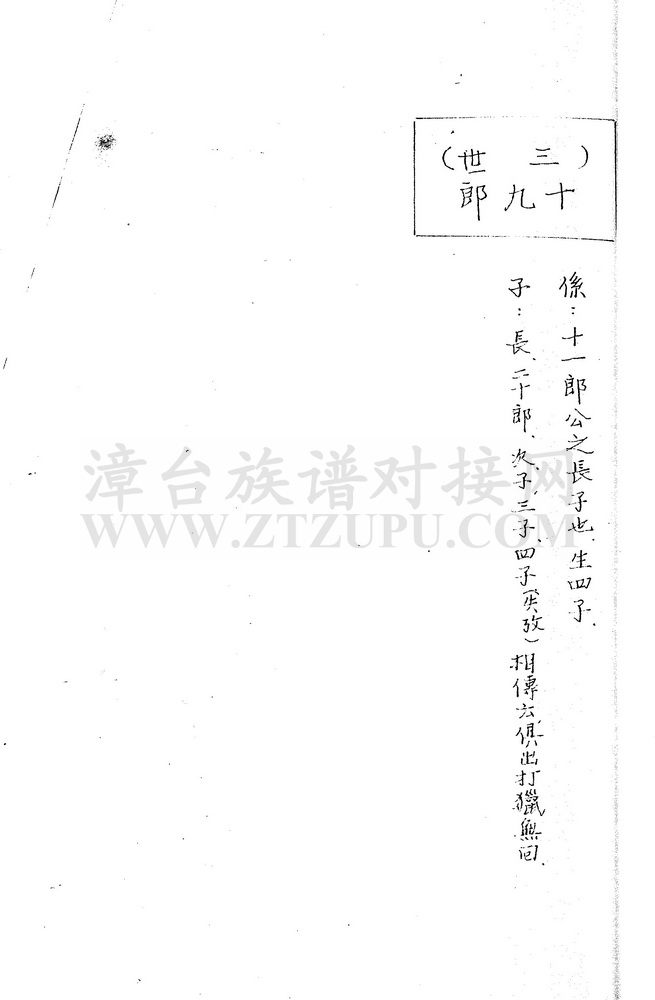 （三世）
十九郎
係：十一郎公之長子也、生四子、
子：長、二十郎、次子、三子、四子（失攷）相傳云、俱出打獵無回、
漳台族谱对接网
WWW.ZTZUPU.COM